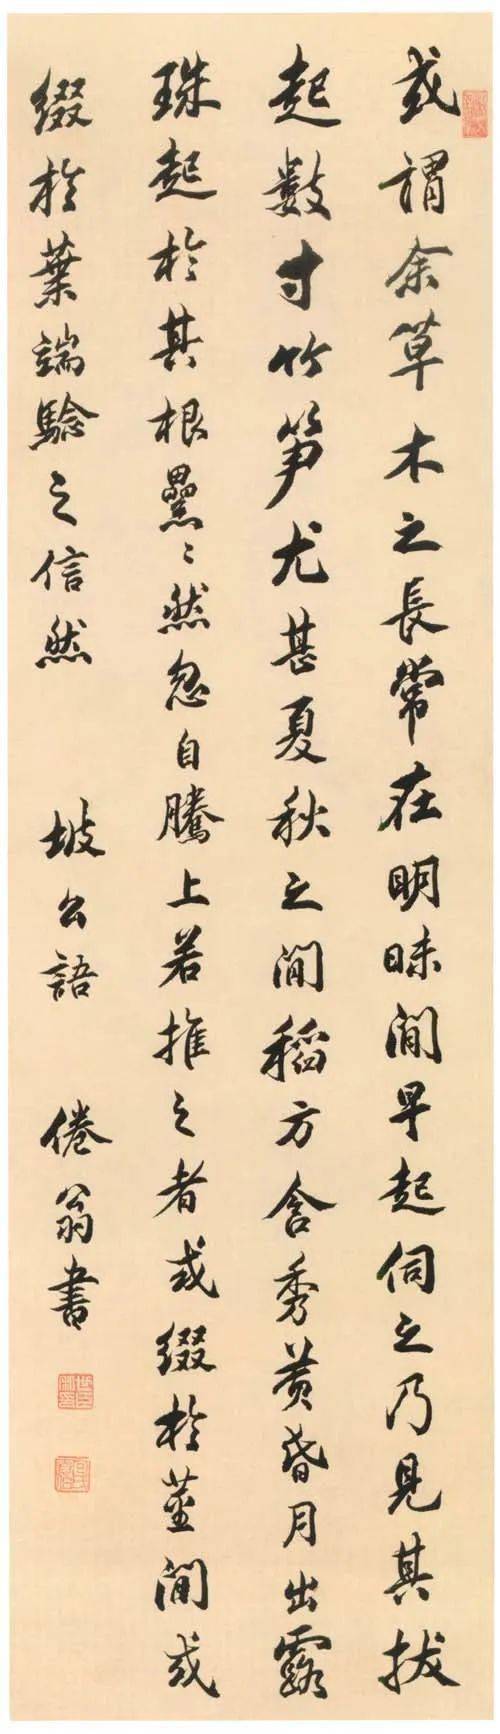 或謂余草木之長常在明昧間早起伺之乃見其拔
起數寸竹笋尤甚夏秋之間稻方含秀黄昏月出露
珠起於其根纍〻然忽自騰上若推之者或綴於莖間或
綴於葉端驗之信然 坡公語 倦翁書